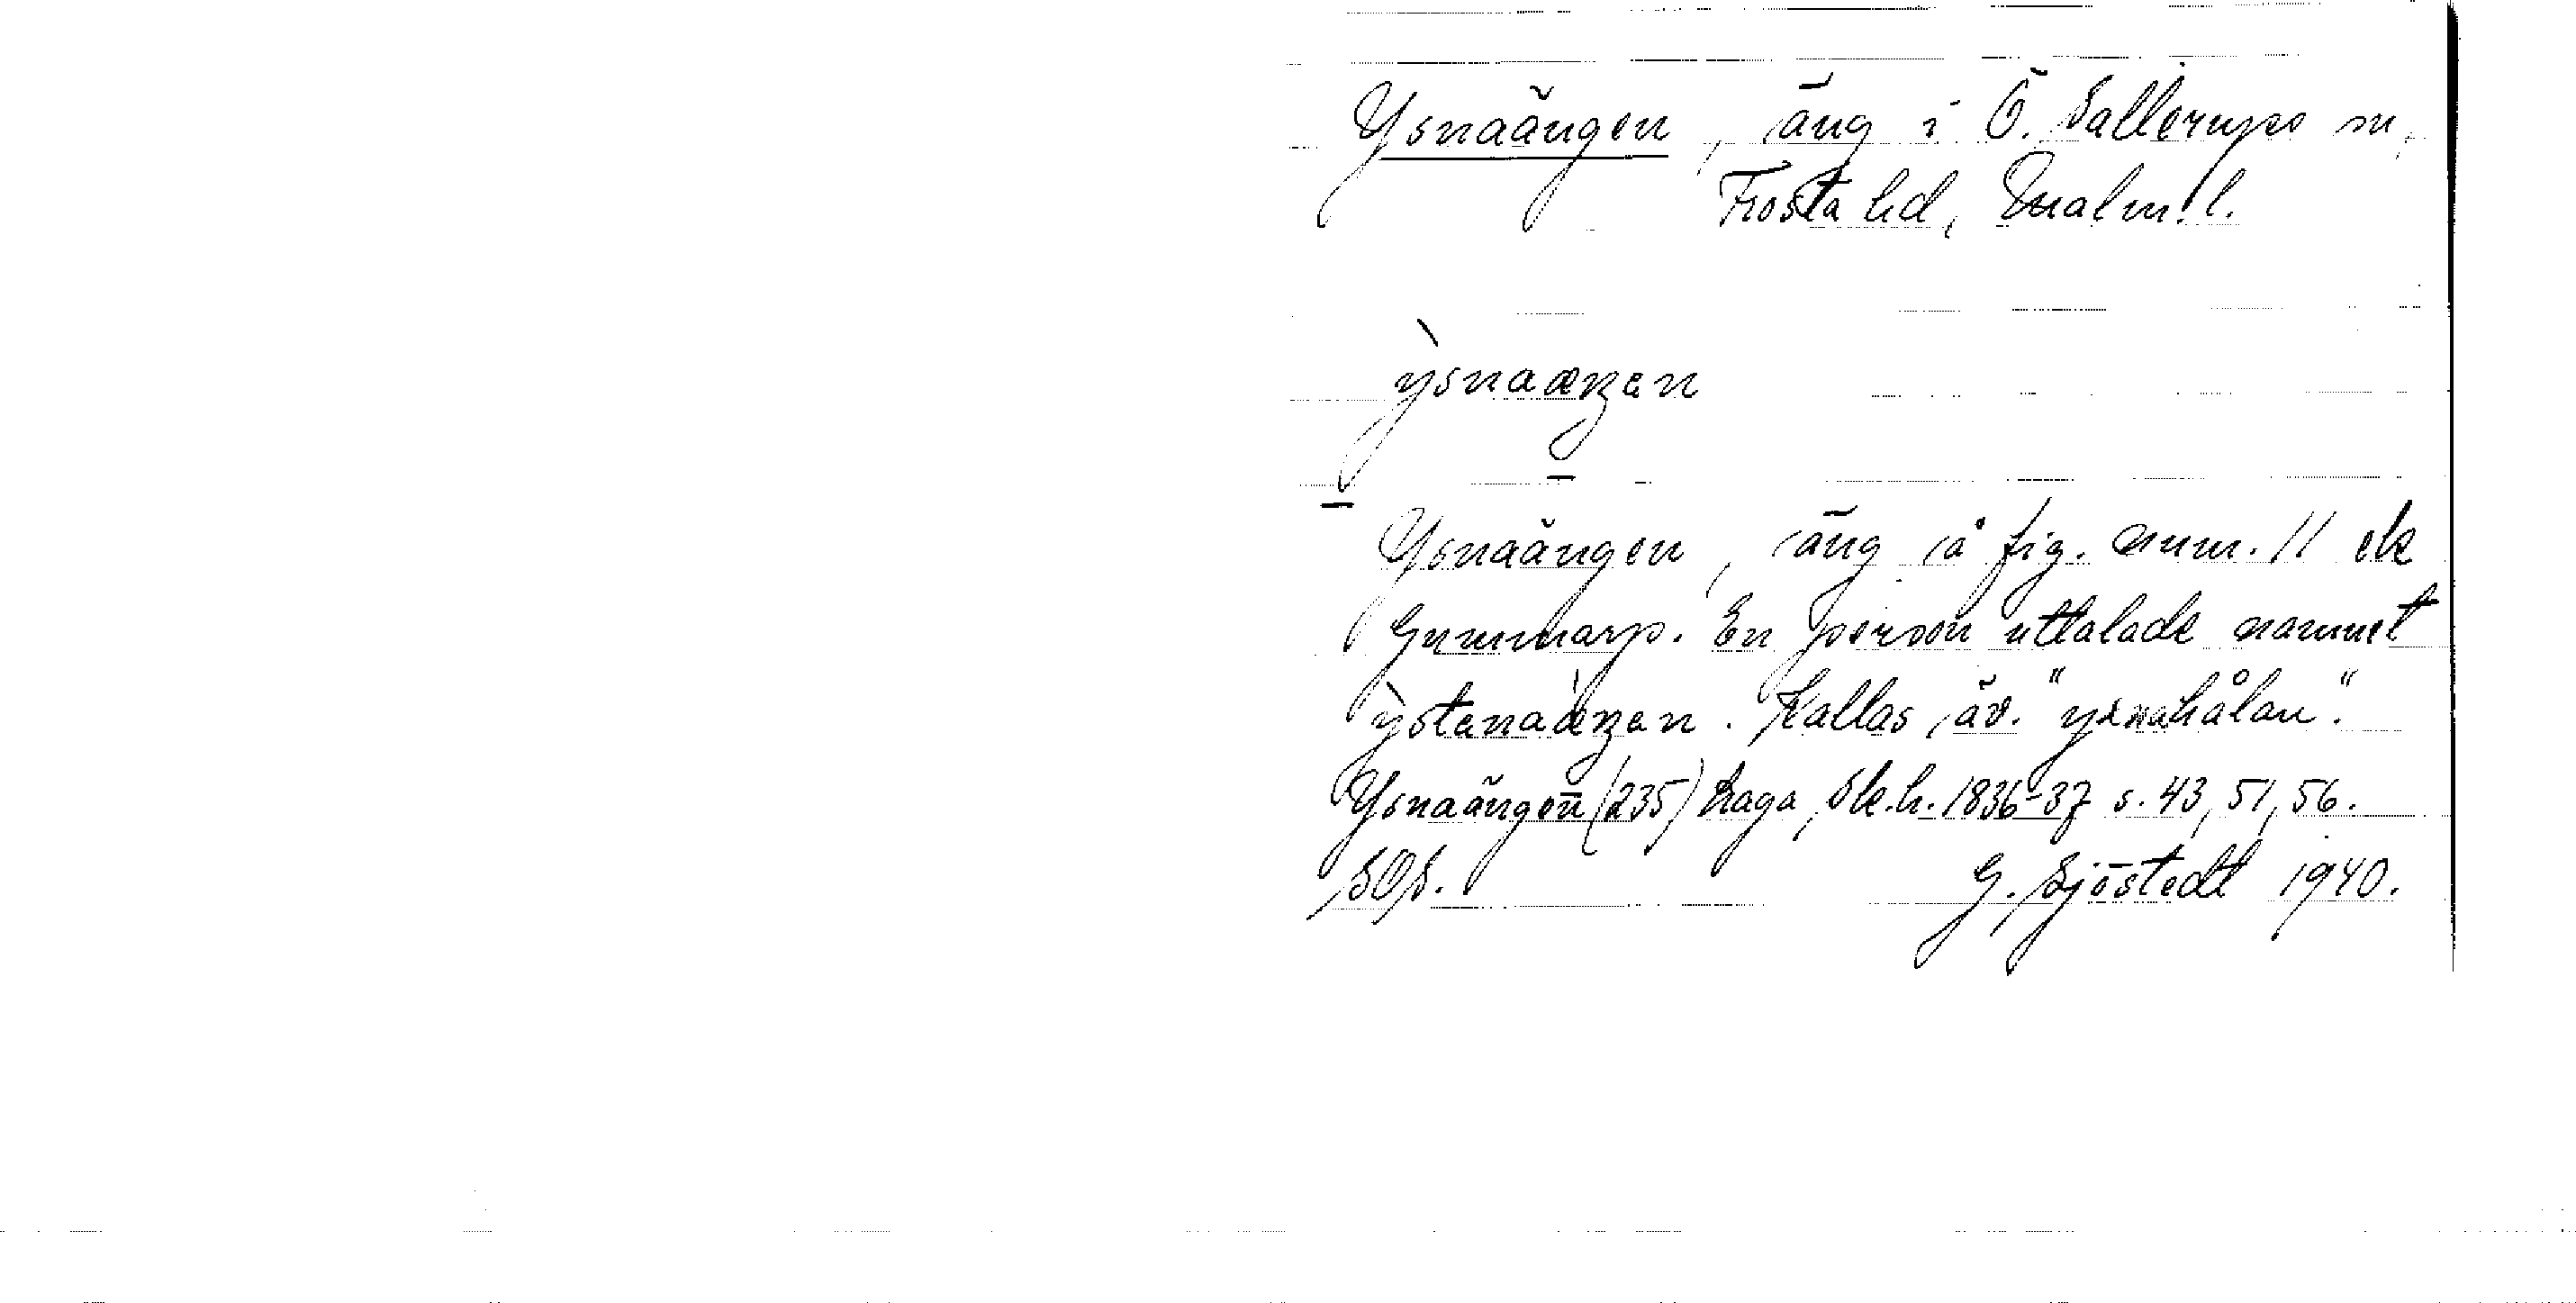 Ysnaängen, äng i Ö. Sallerups sn,
Frosta hd, Malm. l.
ỳsnaæŋən
Ysnaängen, äng å fig. num. 11 ek
Gummarp. En person uttalade namnet
ỳstənaæ̀ŋən. Kallas äv. "ysnahålan".
Ysnaängen (235) Laga Sk.h. 1836-37 s. 43, 51, 56.
SOS. G. Sjöstedt 1940.